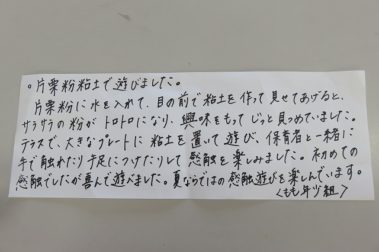 。片栗粉粘土で遊びました。
片栗粉に水を入れて、目の前で粘土を作って見せてあげると、
サラサラの粉がトロトロになり、興味をもってじっと見つめていました。
テラスで、大きなプレートに粘土を置いて遊び、保育者と一緒に
手で触れたり手足につけたりして感触を楽しみました。初めての
感触でしたが喜んで遊べました。夏ならではの感触遊びを楽しんでいます。
〈もも年少組〉